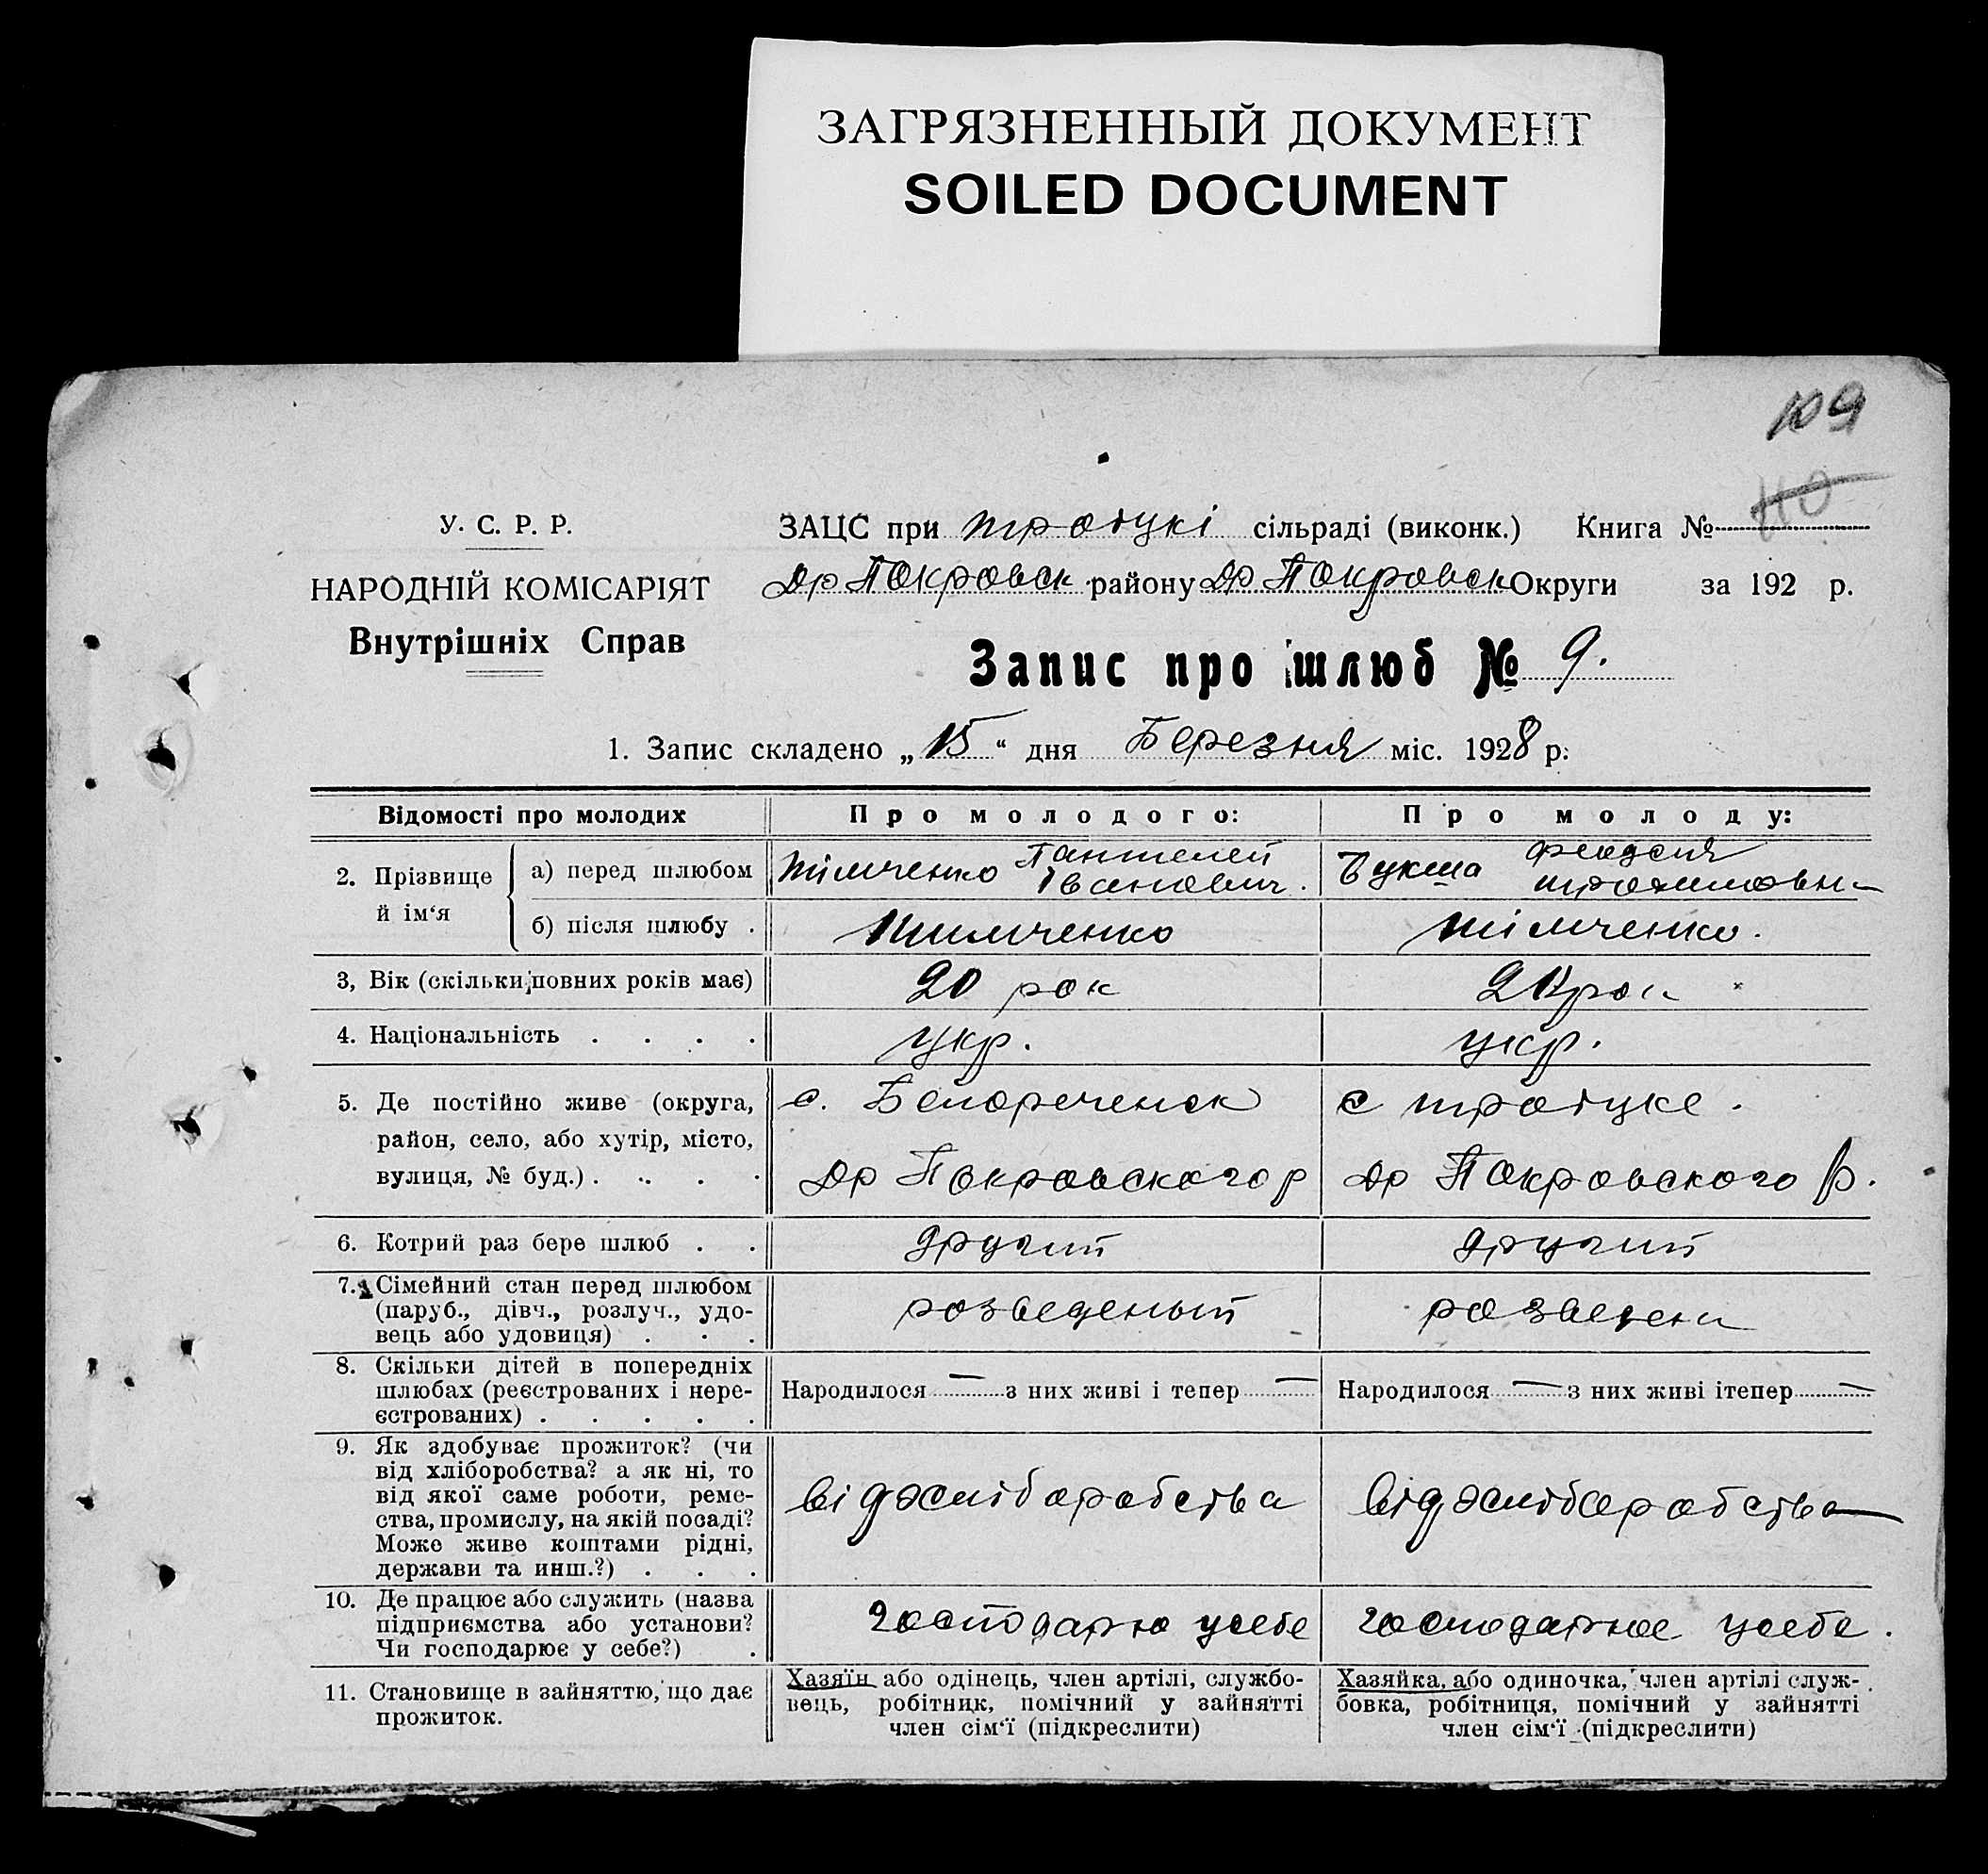 ЗАГРЯЗНЕННЫЙ ДОКУМЕНТ
SOILED DOCUMENT
109
110
У. С. Р. Р.
НАРОДНІЙ КОМІСАРІЯТ
Внутрішніх Справ
ЗАЦС при троіцкі сільраді (виконк.) Книга №
Др Покровск району Др Покровск Округи за 192 р.
Запис про шлюб № 9.
1. Запис складено „ 15 “ дня Березня міс. 1928 р.
Відомості про молодих
Про молодого:
Про молоду:
2. Прізвище й ім‘я
а) перед шлюбом
Тімченко Пантелей Іванович.
Букша Феодосия
б) після шлюбу .
Тимченко
Тімченко.
3, Вік (скільки повних років має)
20 рок
21 рок
4. Національність . . . .
укр.
укр.
5. Де постійно живе (округа,
район, село, або хутір, місто,
вулиця, № буд.) . . . .
с. Белореченск
Др Покровского р
с троіцке .
Др Покровского р.
6. Котрий раз бере шлюб . .
другий
другий
7. Сімейний стан перед шлюбом
(паруб., дівч., розлуч., удо-
вець або удовиця) . . .
розведеный
розведена
8. Скільки дітей в попередніх
шлюбах (реєстрованих і нере-
єстрованих) . . . . .
Народилося — з них живі і тепер —
Народилося — з них живі ітепер —
9. Як здобуває прожиток? (чи
від хліборобства? а як ні, то
від якої саме роботи, реме-
ства, промислу, на якій посаді?
Може живе коштами рідні,
держави та инш.?) . . .
від хліборобства
від хліборобства
10. Де працює або служить (назва
підприємства або установи?
Чи господарює у себе?) .
господарю усебе
господарює усебе .
11. Становище в зайняттю, що дає
прожиток.
Хазяїн або одінець, член артілі, службо-
вець, робітник, помічний у зайнятті
член сім‘ї (підкреслити)
Хазяйка, або одиночка, член артілі служ-
бовка, робітниця, помічний у зайнятті
член сім‘ї (підкреслити)